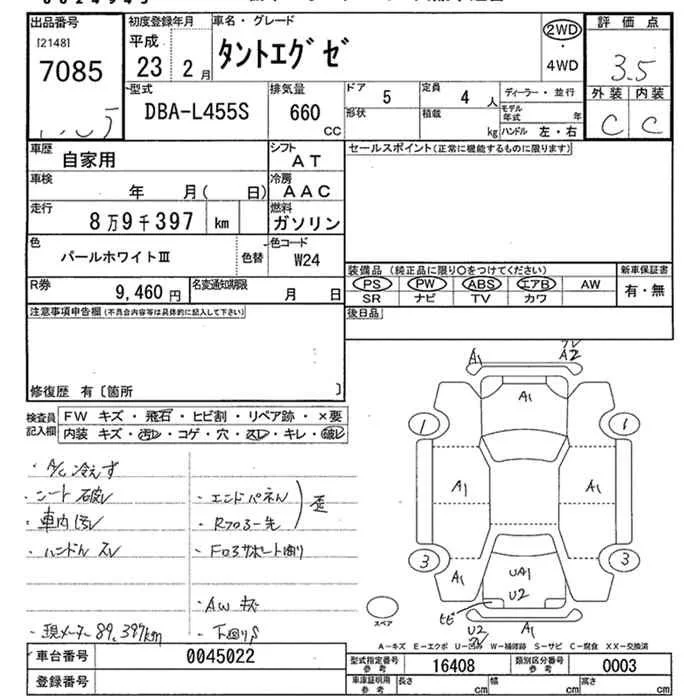 出品番号
[2148]
7085
初度登録年月
平成
23 2月
車名・グレード
タントエグゼ
2WD
・
4WD
評価点
3.5
外装 内装
C C
型式
DBA-L455S
排気量
660
CC
ドア
5
定員
4 人
形状
積載
kg
ディーラー・並行
モデル年式 年
ハンドル 左・右
車歴
自家用
シフト
AT
セールスポイント(正常に機能するものに限ります)
車検
年 月( 日)
冷房
AAC
走行
8万9千397 km
燃料
ガソリン
色
パールホワイトⅢ
色替
色コード
W24
装備品 (純正品に限り○をつけてください)
新車保証書
PS PW ABS エアB AW
有・無
SR ナビ TV カワ
R券
9,460円
名変通知期限
月 日
後日品
注意事項申告欄(不具合内容等は具体的に記入して下さい)
修復歴 有〔箇所 〕
検査員
記入欄
FW キズ・飛石・ヒビ割・リペア跡・×要
内装 キズ・汚レ・コゲ・穴・スレ・キレ・破レ
・A/C 冷えず
・シート破レ
・車内汚レ
・ハンドルスレ
・エンドパネル
・Rフロアー先
歪
・Fロアサポート曲り
・AWキズ
・現メーター89,397km
・下回りS
A1
A2
A1
1
1
A1
A1
3
3
A1
UA1
U2
ヒビ
U2
A1
スペア
A−キズ E−エクボ U−凹み W−補修跡 S−サビ C−腐食 XX−交換済
車台番号
0045022
型式指定番号
参考
16408
類別区分番号
参考
0003
登録番号
車庫証明用
参考
長さ cm
幅 cm
高さ cm